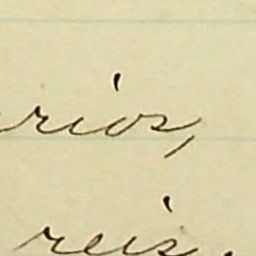 rios,
reis.